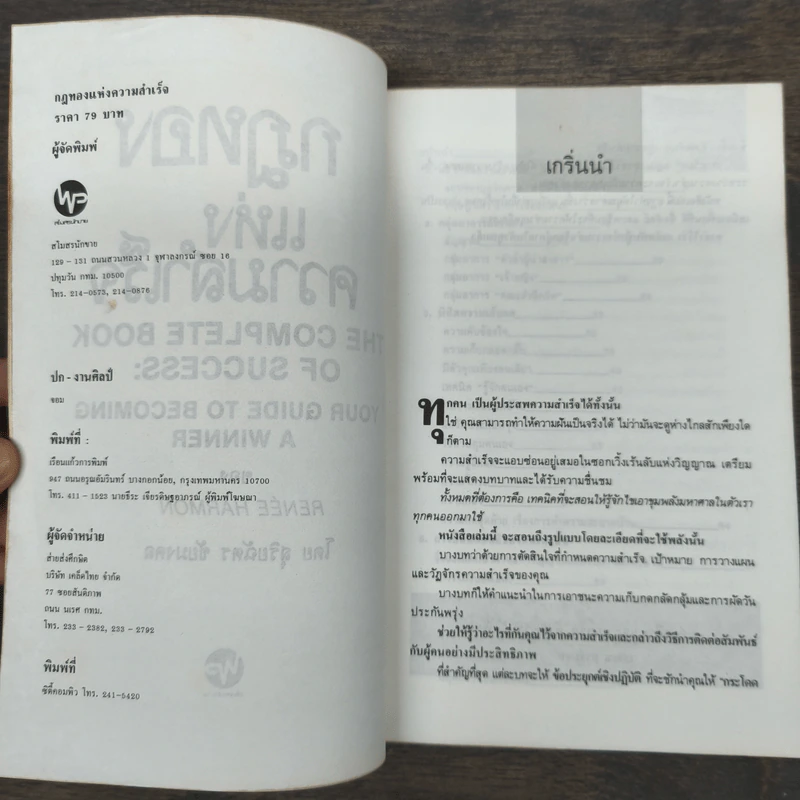 กฎทองแห่งความสำเร็จ
ราคา 79 บาท
ผู้จัดพิมพ์
WP
สโมสรนักขาย
สโมสรนักขาย
129 - 131 ถนนสวนหลวง 1 จุฬาลงกรณ์ ซอย 16
ปทุมวัน กทม. 10500
โทร. 214-0573, 214-0876
ปก - งานศิลป์
จอม
พิมพ์ที่ :
เรือนแก้วการพิมพ์
947 ถนนอรุณอัมรินทร์ บางกอกน้อย, กรุงเทพมหานคร 10700
โทร. 411 - 1523 นายธีระ เจียรดิษฐอาภรณ์ ผู้พิมพ์โฆษณา
ผู้จัดจำหน่าย
สายส่งศึกษิต
บริษัท เคล็ดไทย จำกัด
77 ซอยสันติภาพ
ถนน นเรศ กทม.
โทร. 233 - 2382, 233 - 2792
พิมพ์ที่
ซิตี้คอมพิว โทร. 241-5420
กฎทอง
แห่ง
ความสำเร็จ
THE COMPLETE BOOK
OF SUCCESS:
YOUR GUIDE TO BECOMING
A WINNER
RENÉE HARMON
โดย สุริยฉัตร ชัยมงคล
เกริ่นนำ
ทุกคน เป็นผู้ประสพความสำเร็จได้ทั้งนั้น
ใช่ คุณสามารถทำให้ความฝันเป็นจริงได้ ไม่ว่ามันจะดูห่างไกลสักเพียงใด
ก็ตาม
ความสำเร็จจะแอบซ่อนอยู่เสมอในซอกเวิ้งเร้นลับแห่งวิญญาณ เตรียม
พร้อมที่จะแสดงบทบาทและได้รับความชื่นชม
ทั้งหมดที่ต้องการคือ เทคนิคที่จะสอนให้รู้จักไขเอาขุมพลังมหาศาลในตัวเรา
ทุกคนออกมาใช้
หนังสือเล่มนี้ จะสอนถึงรูปแบบโดยละเอียดที่จะใช้พลังนั้น
บางบทว่าด้วยการตัดสินใจที่กำหนดความสำเร็จ เป้าหมาย การวางแผน
และวัฏจักรความสำเร็จของคุณ
บางบทก็ให้คำแนะนำในการเอาชนะความเก็บกดกลัดกลุ้มและการผัดวัน
ประกันพรุ่ง
ช่วยให้รู้ว่าอะไรที่กันคุณไว้จากความสำเร็จและกล่าวถึงวิธีการติดต่อสัมพันธ์
กับผู้คนอย่างมีประสิทธิภาพ
ที่สำคัญที่สุด แต่ละบทจะให้ ข้อประยุกต์เชิงปฏิบัติ ที่จะชักนำคุณให้ "กระโดด